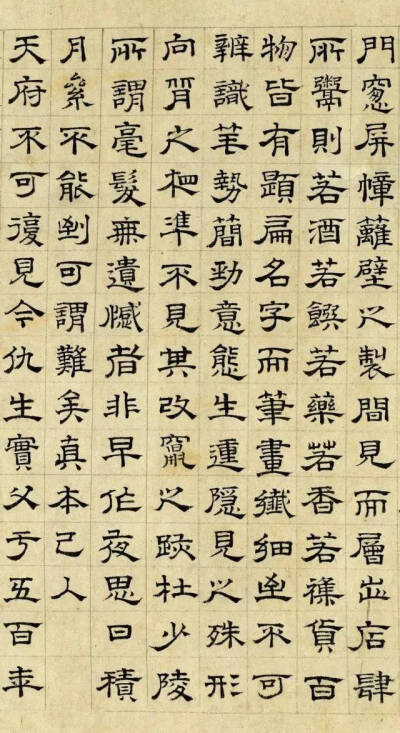 門窻屏幛籬壁之製間見而層出店肆
所鬻則若酒若饌若藥若香若襍貨百
物皆有題扁名字而筆畫纖細至不可
辨識笔勢簡勁意態生運隱見之殊形
向背之相準不見其改竄之跡杜少陵
所謂毫髮無遺憾者非早作夜思日積
月絫不能到可謂難矣真本已入
天府不可復見今仇生實父于五百年